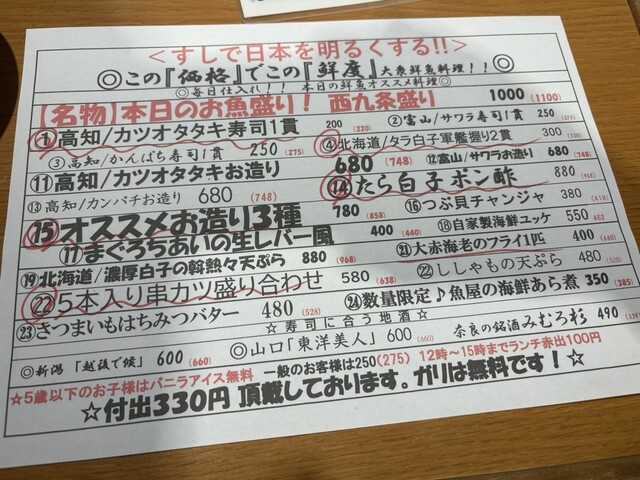 <すしで日本を明るくする!!>
◎この『価格』でこの『鮮度』大衆鮮魚料理!!◎
◎毎日仕入れ!! 本日の鮮魚オススメ料理◎
【名物】本日のお魚盛り! 西九条盛り 1000 (1100)
①高知/カツオタタキ寿司1貫 200 (220) ②富山/サワラ寿司1貫 250 (275)
③高知/かんぱち寿司1貫 250 (275) ④北海道/タラ白子軍艦握り2貫 300 (330)
⑪高知/カツオタタキお造り 680 (748) ⑫富山/サワラお造り 680 (748)
⑬高知/カンパチお造り 680 (748) ⑭たら白子ポン酢 880 (968)
⑮オススメお造り3種 780 (858) ⑯つぶ貝チャンジャ 380 (418)
⑰まぐろちあいの生レバー風 400 (440) ⑱自家製海鮮ユッケ 550
⑲北海道/濃厚白子の熱々天ぷら 880 (968) ㉑大赤海老のフライ1匹 400 (440)
㉒5本入り串カツ盛り合わせ 580 (638) ㉒ししゃもの天ぷら 480
㉓さつまいもはちみつバター 480 (528) ㉔数量限定♪魚屋の海鮮あら煮 350 (385)
☆寿司に合う地酒☆
◎新潟「越後で候」600 (660) ◎山口「東洋美人」600 (660) 奈良の銘酒みむろ杉 490
☆5歳以下のお子様はバニラアイス無料 一般のお客様は250(275) 12時〜15時までランチ赤出100円
☆付出330円 頂戴しております。ガリは無料です!☆